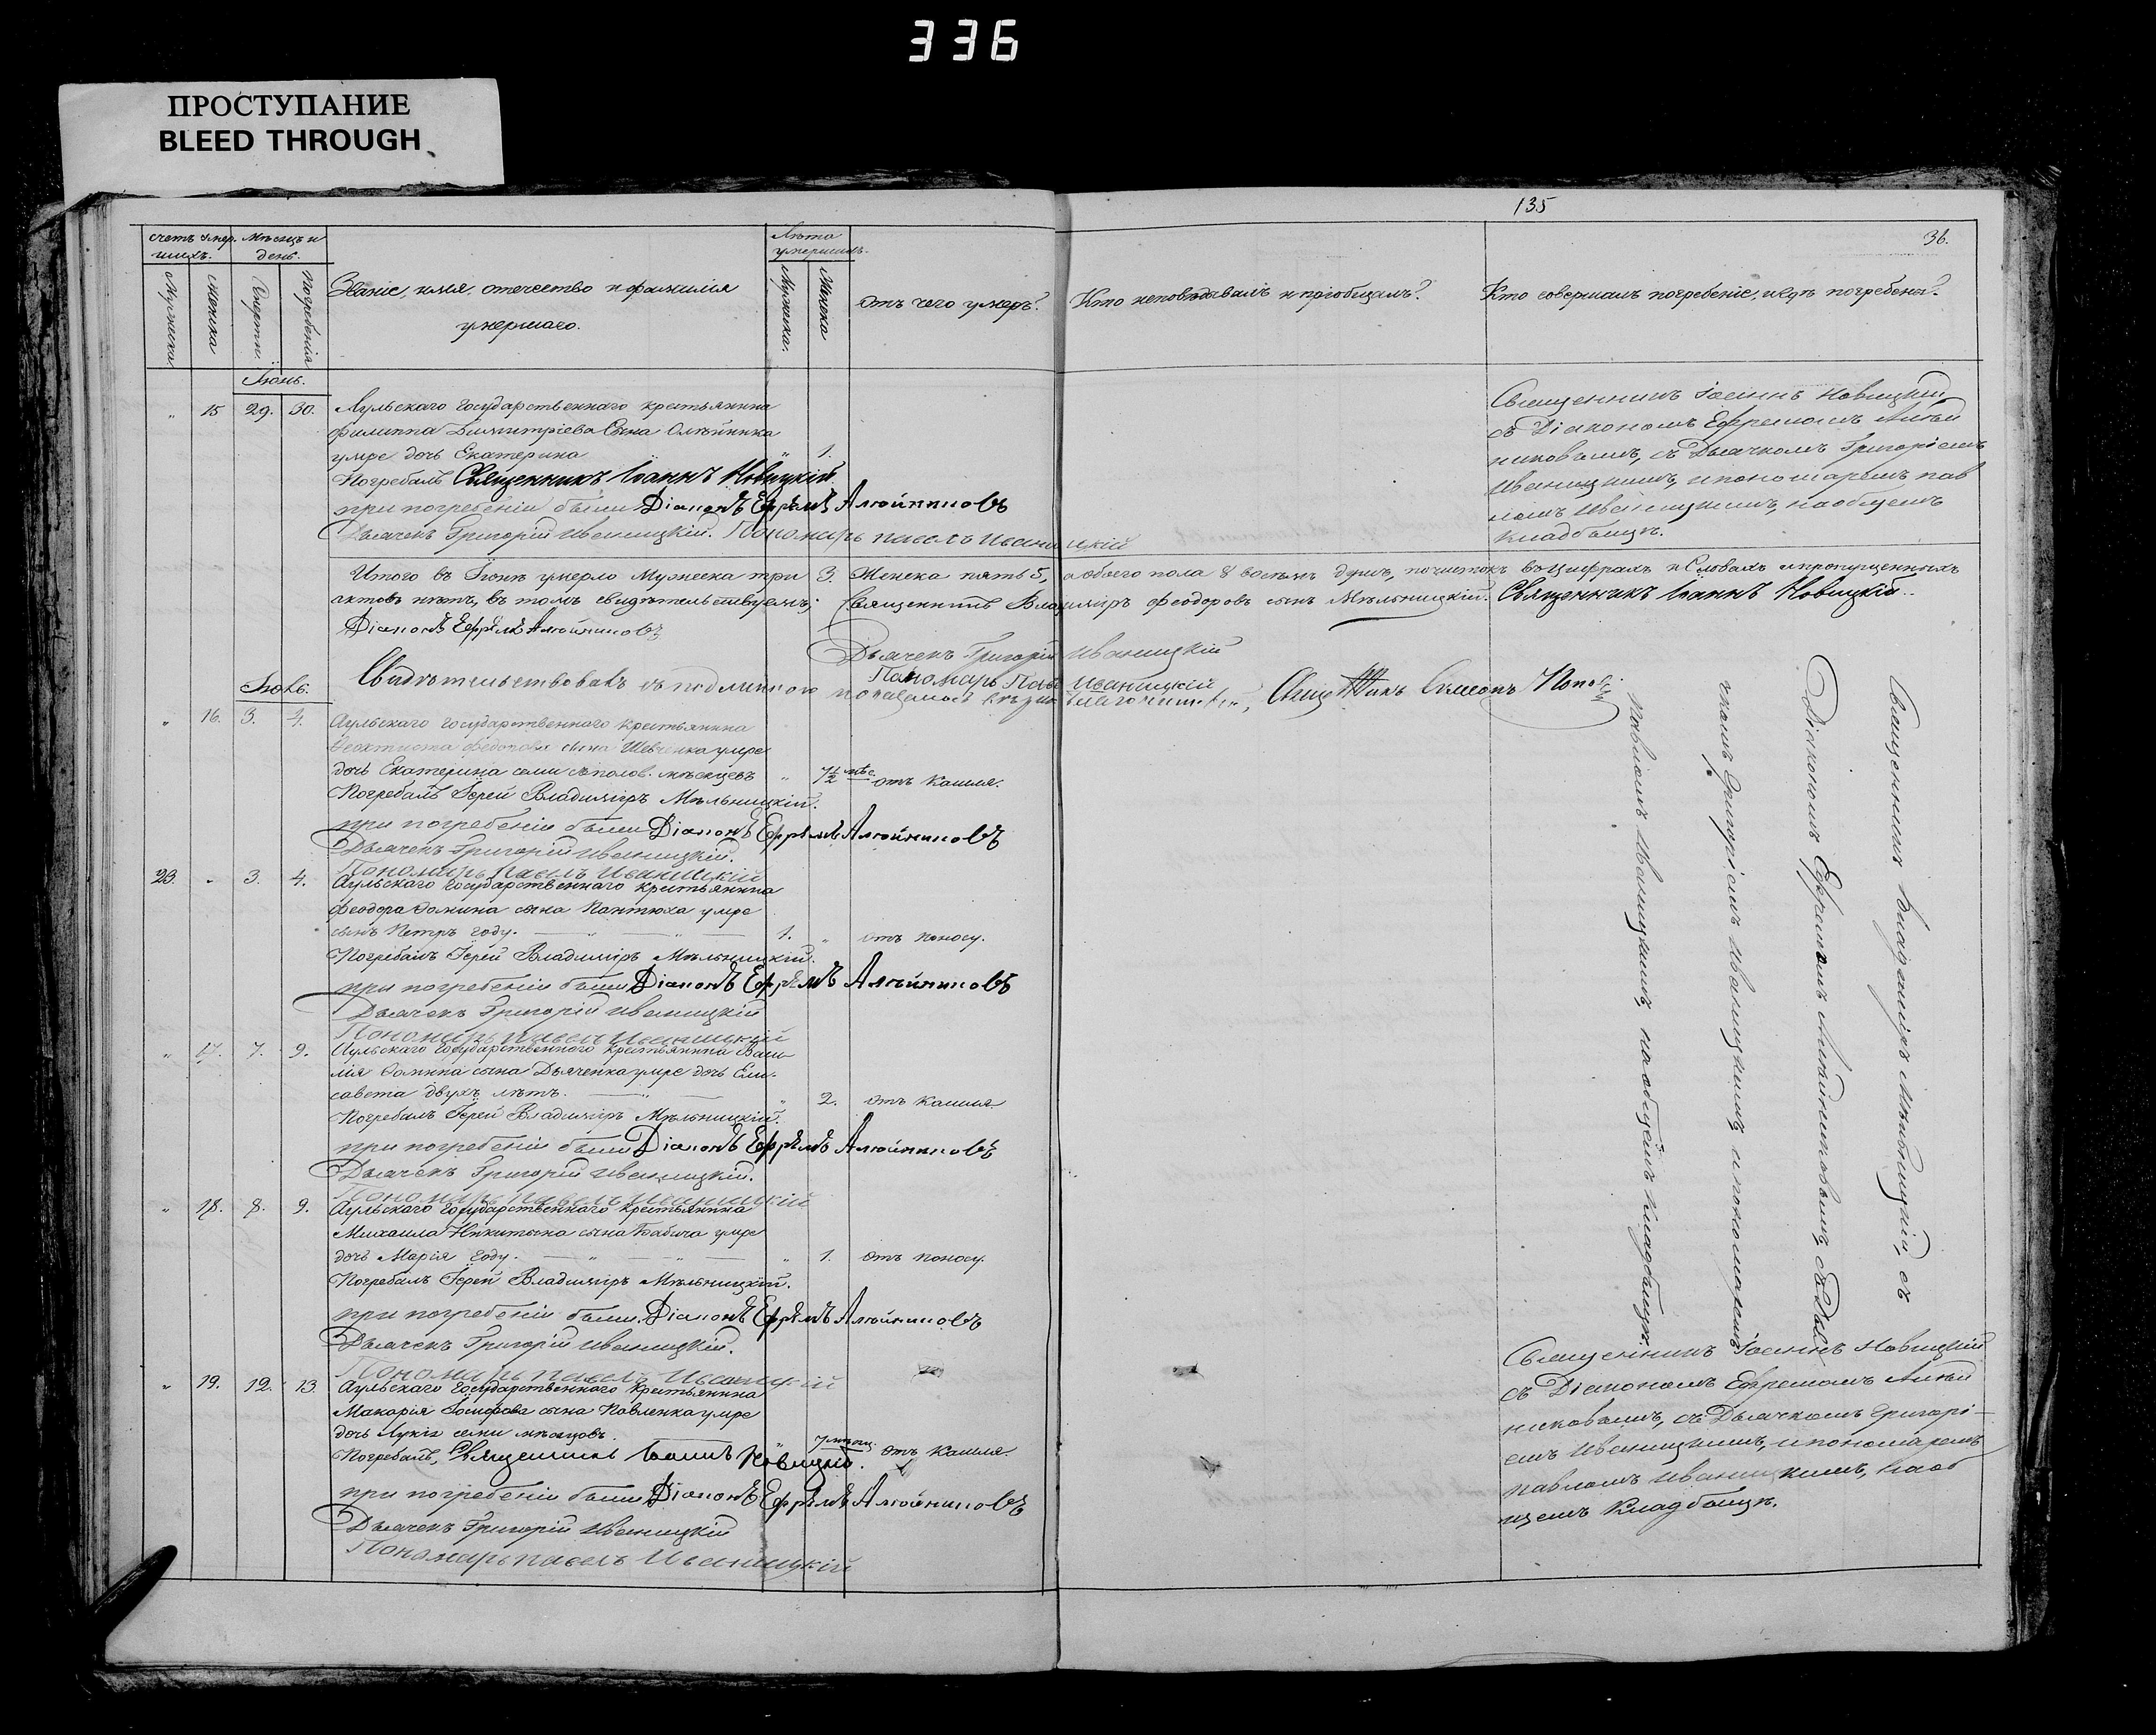 336
ПРОСТУПАНИЕ
BLEED THROUGH
135
36.
счетъ умер.
шихъ.
Мужеска
женска
Мѣсяцъ и
день.
Смерти.
Погребенія
Званіе, имя, отчество и фамилія
умершаго.
Лѣта
умершихъ.
Мужеска.
Женска
отъ чего умеръ?
Кто исповѣдывалъ и пріобщалъ?
Кто совершалъ погребеніе, и гдѣ погребены?
Іюнь.
" 15 29. 30. Аульскаго государственнаго крестьянина
Филиппа Димитріева сына Олѣйника
умре дочь Екатерина " 1.
Погребалъ Священникъ Іоаннъ Новицкій
при погребеніи были Діаконъ Ефремъ Алѣйниковъ
Дьячекъ Григорій Иваницкій. Пономарь павелъ Иваницкій
Священникъ Іоаннъ Новицкій
съ Діакономъ Ефремомъ Алѣй
никовымъ, съ Дьячкомъ Григоріемъ
Иваницкимъ, и пономаремъ пав
ломъ Иваницкимъ, на общемъ
кладбищѣ.
Итого въ Іюнѣ умерло Мужеска три 3. Женска пять 5, а обоего пола 8 восемь душъ, почистокъ въ цифрахъ и словахъ и пропущенныхъ
актовъ нѣтъ, въ томъ свидѣтельствуемъ; Священникъ Владиміръ Феодоровъ сынъ Мѣльницкій. Священникъ Іоаннъ Новицкій.
Діаконъ Ефремъ Алѣйниковъ
Дьячекъ Григорій Иваницкій
Пономарь Павелъ Иваницкій
Свидѣтельствовалъ съ подлинною
Симеонъ Поповъ
Іюль.
" 16. 3. 4. Аульскаго государственнаго крестьянина
Феоктиста Федорова сына Шевченка умре
дочь Екатерина семи съ полов. мѣсяцевъ " 7½ мѣс. отъ кашля.
Погребалъ Іерей Владиміръ Мѣльницкій.
при погребеніи были Діаконъ Ефремъ Алѣйниковъ
Дьячекъ Григорій Иваницкій.
Пономарь Павелъ Иваницкій
23. " 3. 4. Аульскаго государственнаго крестьянина
Феодора Фомина сына Пантюха умре
сынъ Петръ году. " " 1. " отъ поносу.
Погребалъ Іерей Владиміръ Мѣльницкій.
при погребеніи были Діаконъ Ефремъ Алѣйниковъ
Дьячекъ Григорій Иваницкій
Пономарь павелъ Иваницкій
" 17. 7. 9. Аульскаго государственнаго крестьянина Васи
лія Фомина сына Дьяченка умре дочь Ели-
савета двухъ лѣтъ. " " 2. отъ кашля.
Погребалъ Іерей Владиміръ Мѣльницкій.
при погребеніи были Діаконъ Ефремъ Алѣйниковъ
Дьячекъ Григорій Иваницкій.
Пономарь Павелъ Иваницкій
" 18. 8. 9. Аульскаго государственнаго крестьянина
Михаила Никитина сына Бабича умре
дочь Марія году. " " " 1. отъ поносу.
Погребалъ Іерей Владиміръ Мѣльницкій.
при погребеніи были Діаконъ Ефремъ Алѣйниковъ
Дьячекъ Григорій Иваницкій.
Пономарь павелъ Иваницкій
Священникъ Владиміръ Мѣльницкій, съ
Діакономъ Ефремомъ Алѣйниковымъ, съ Дья
чкомъ Григоріемъ Иваницкимъ, и пономаремъ
Павломъ Иваницкимъ, на общемъ кладбищѣ.
" 19. 12. 13. Аульскаго государственнаго крестьянина
Макарія сына Павленка умре
дочь Лукія семи мѣсяцовъ. " 7 мѣсяц. отъ кашля.
Погребалъ, Священникъ Іоаннъ Новицкій.
при погребеніи были Діаконъ Ефремъ Алѣйниковъ
Дьячекъ Григорій Иваницкій
Пономарь павелъ Иваницкій
Священникъ Іоаннъ Новицкій
съ Діакономъ Ефремомъ Алѣй
никовымъ, съ Дьячкомъ Григорі-
емъ Иваницкимъ, и пономаремъ
павломъ Иваницкимъ, на об
щемъ кладбищѣ.